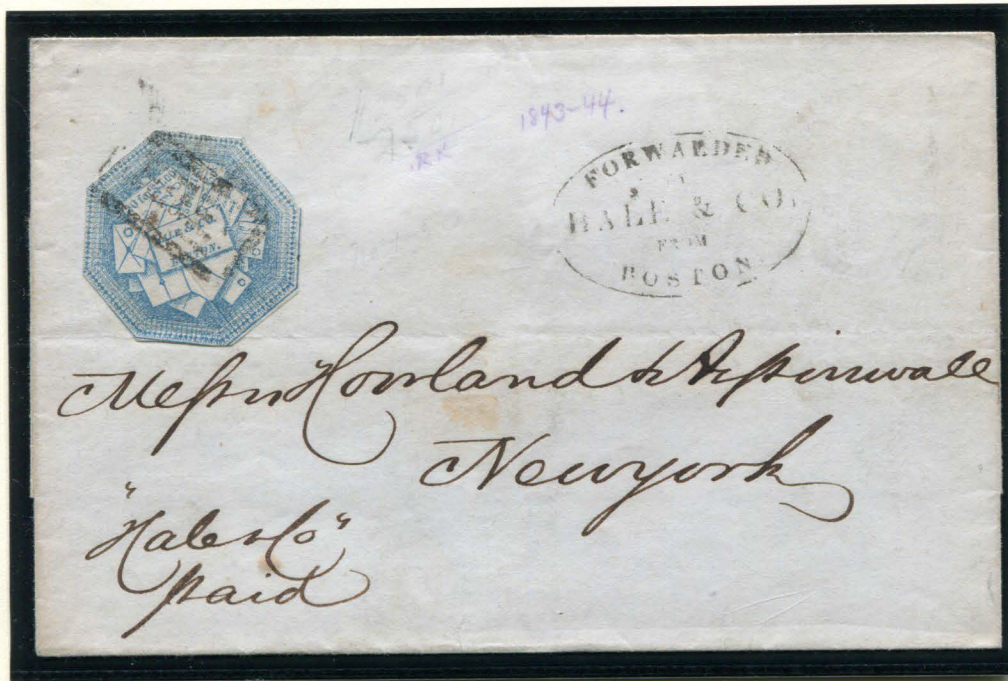 1843-44.
FORWARDED
HALE & CO.
FROM
BOSTON
HALE & CO.
BOSTON.
Messrs Howland & Aspinwall
Newyork
"Hale & Co"
paid